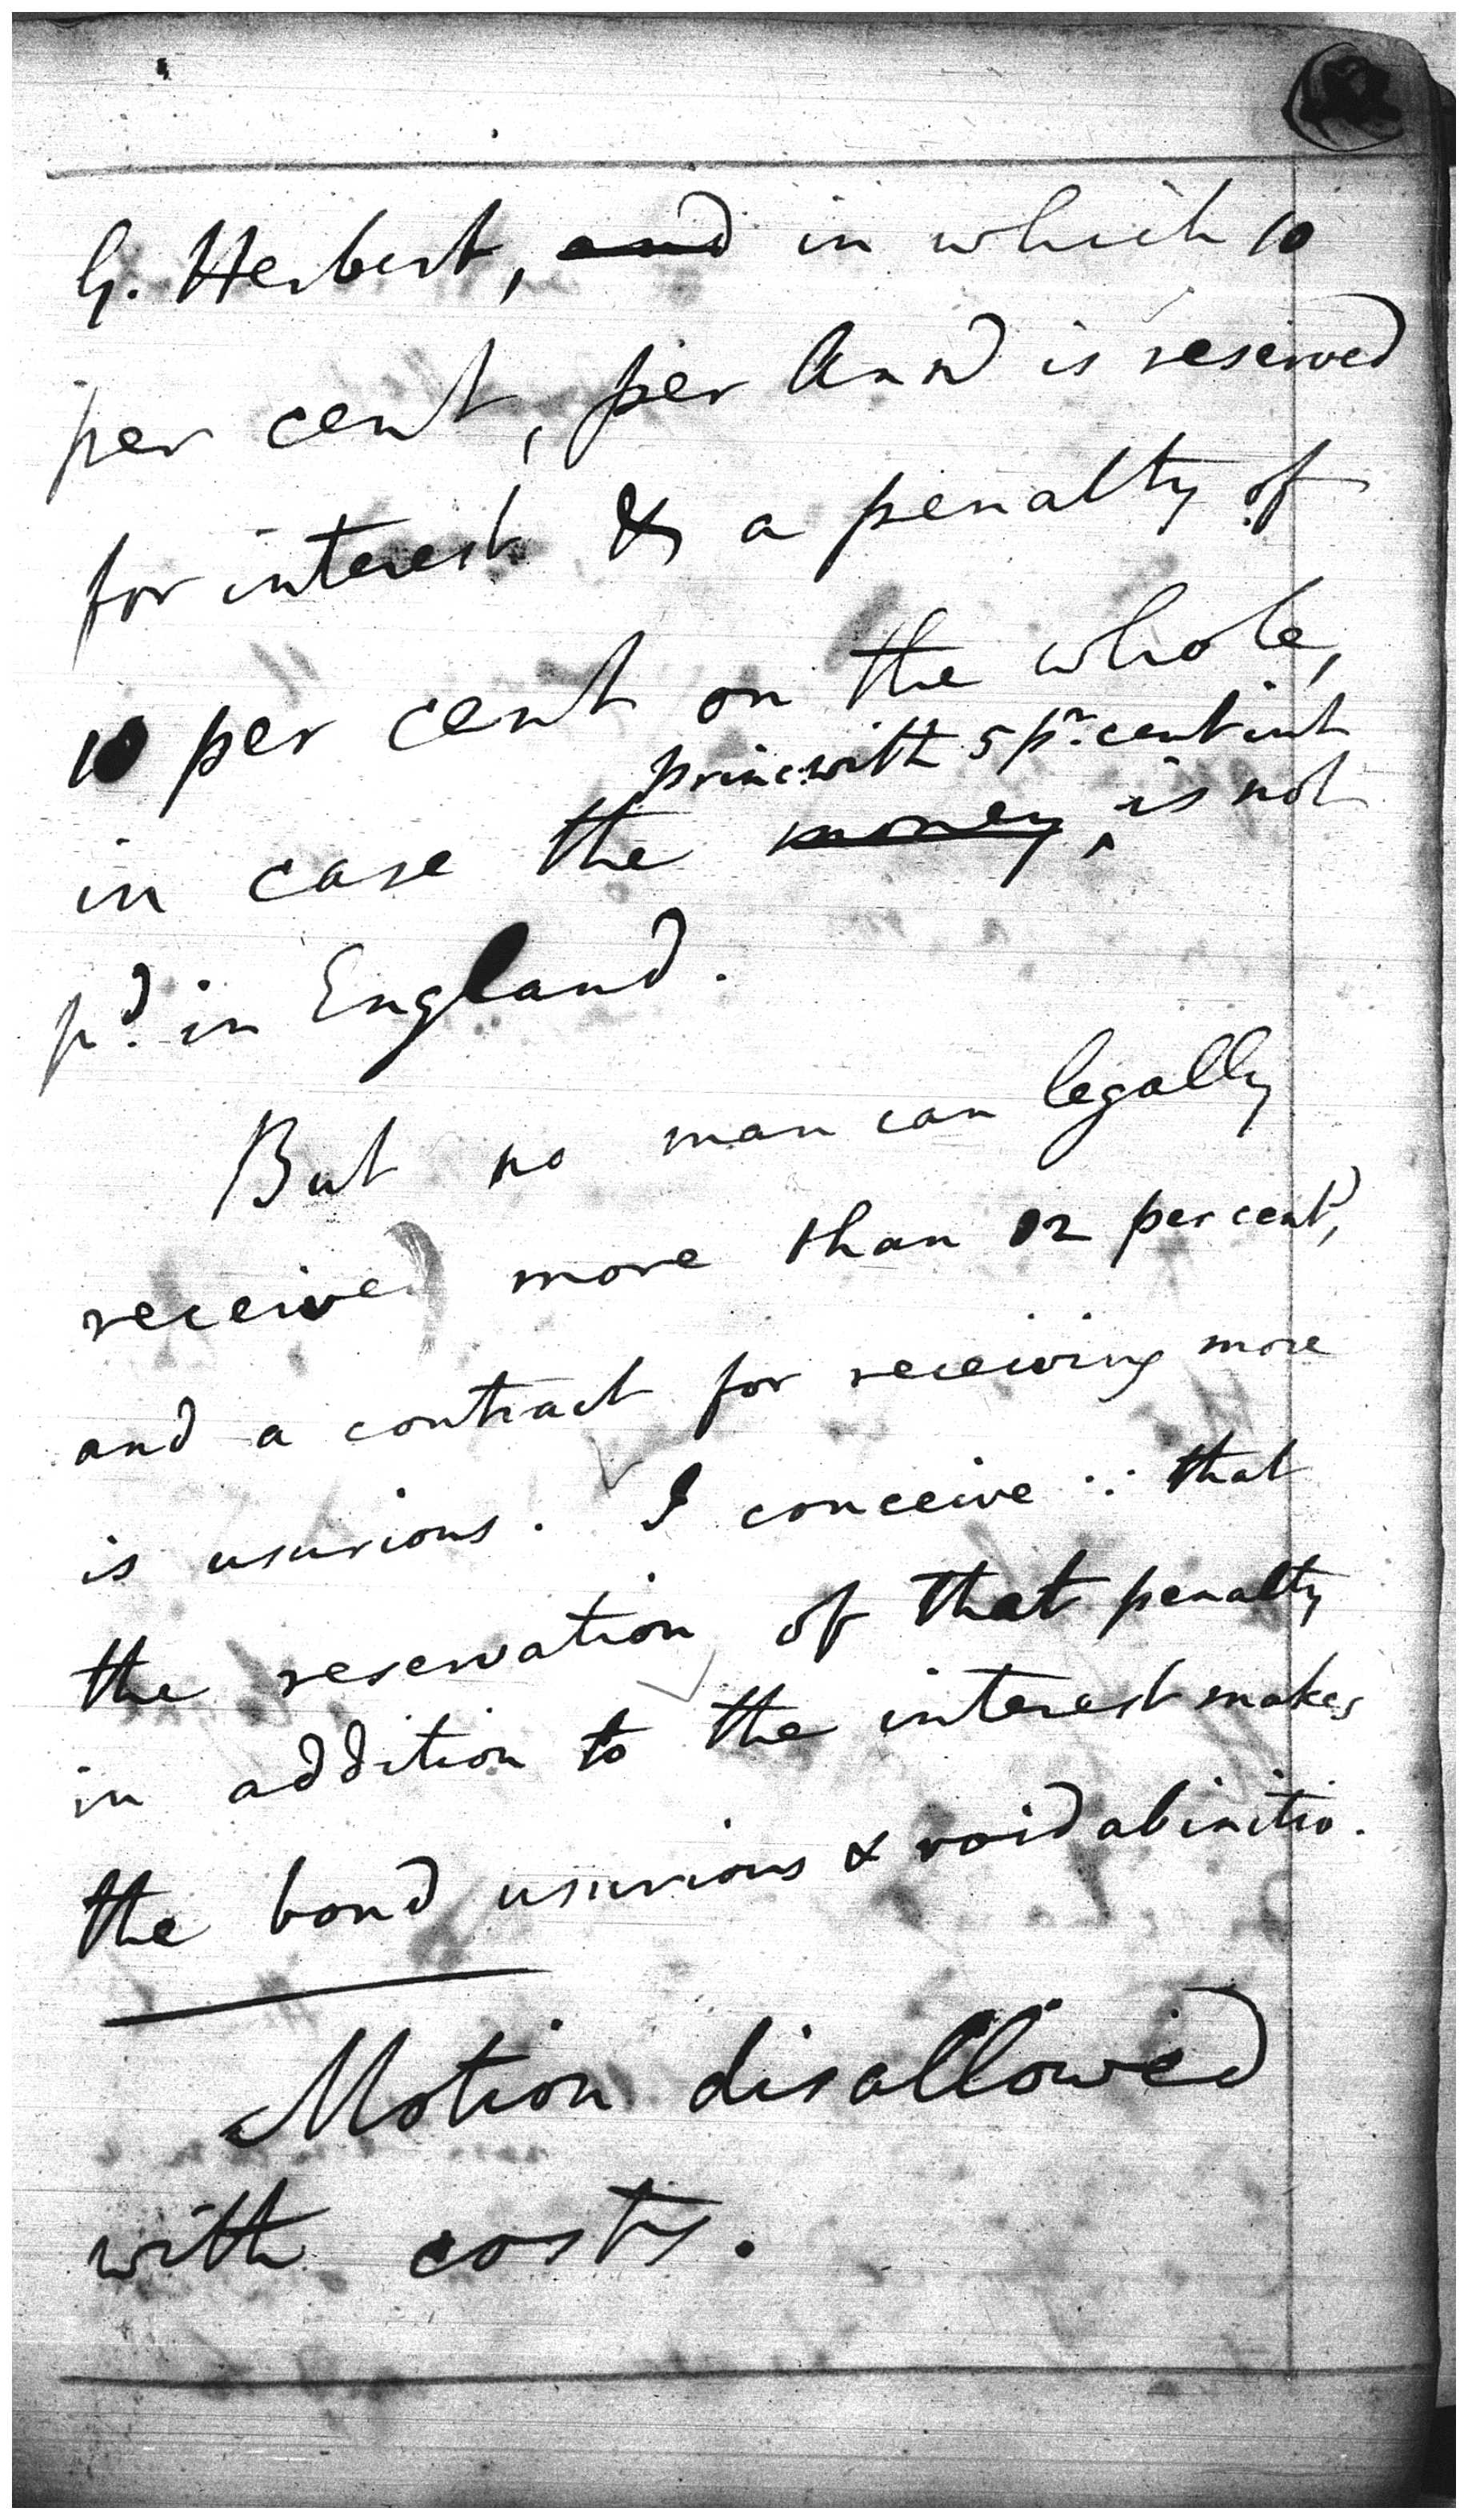 G. Herbert, and in which 10
per cent, per Ann is reserved
for interest & a penalty of
10 per cent on the whole,
princ: with 5 pr. cent int
in case the money is not
pd. in England.
But no man can legally
receive more than 12 per cent,
and a contract for receiving more
is usurious. I conceive ∴ that
the reservation of that penalty
in addition to the interest makes
the bond usurious & void abinitio.
Motion disallowed
with costs.